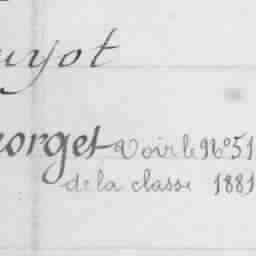 uyot
eorget Voir le N° 51
de la classe 1881